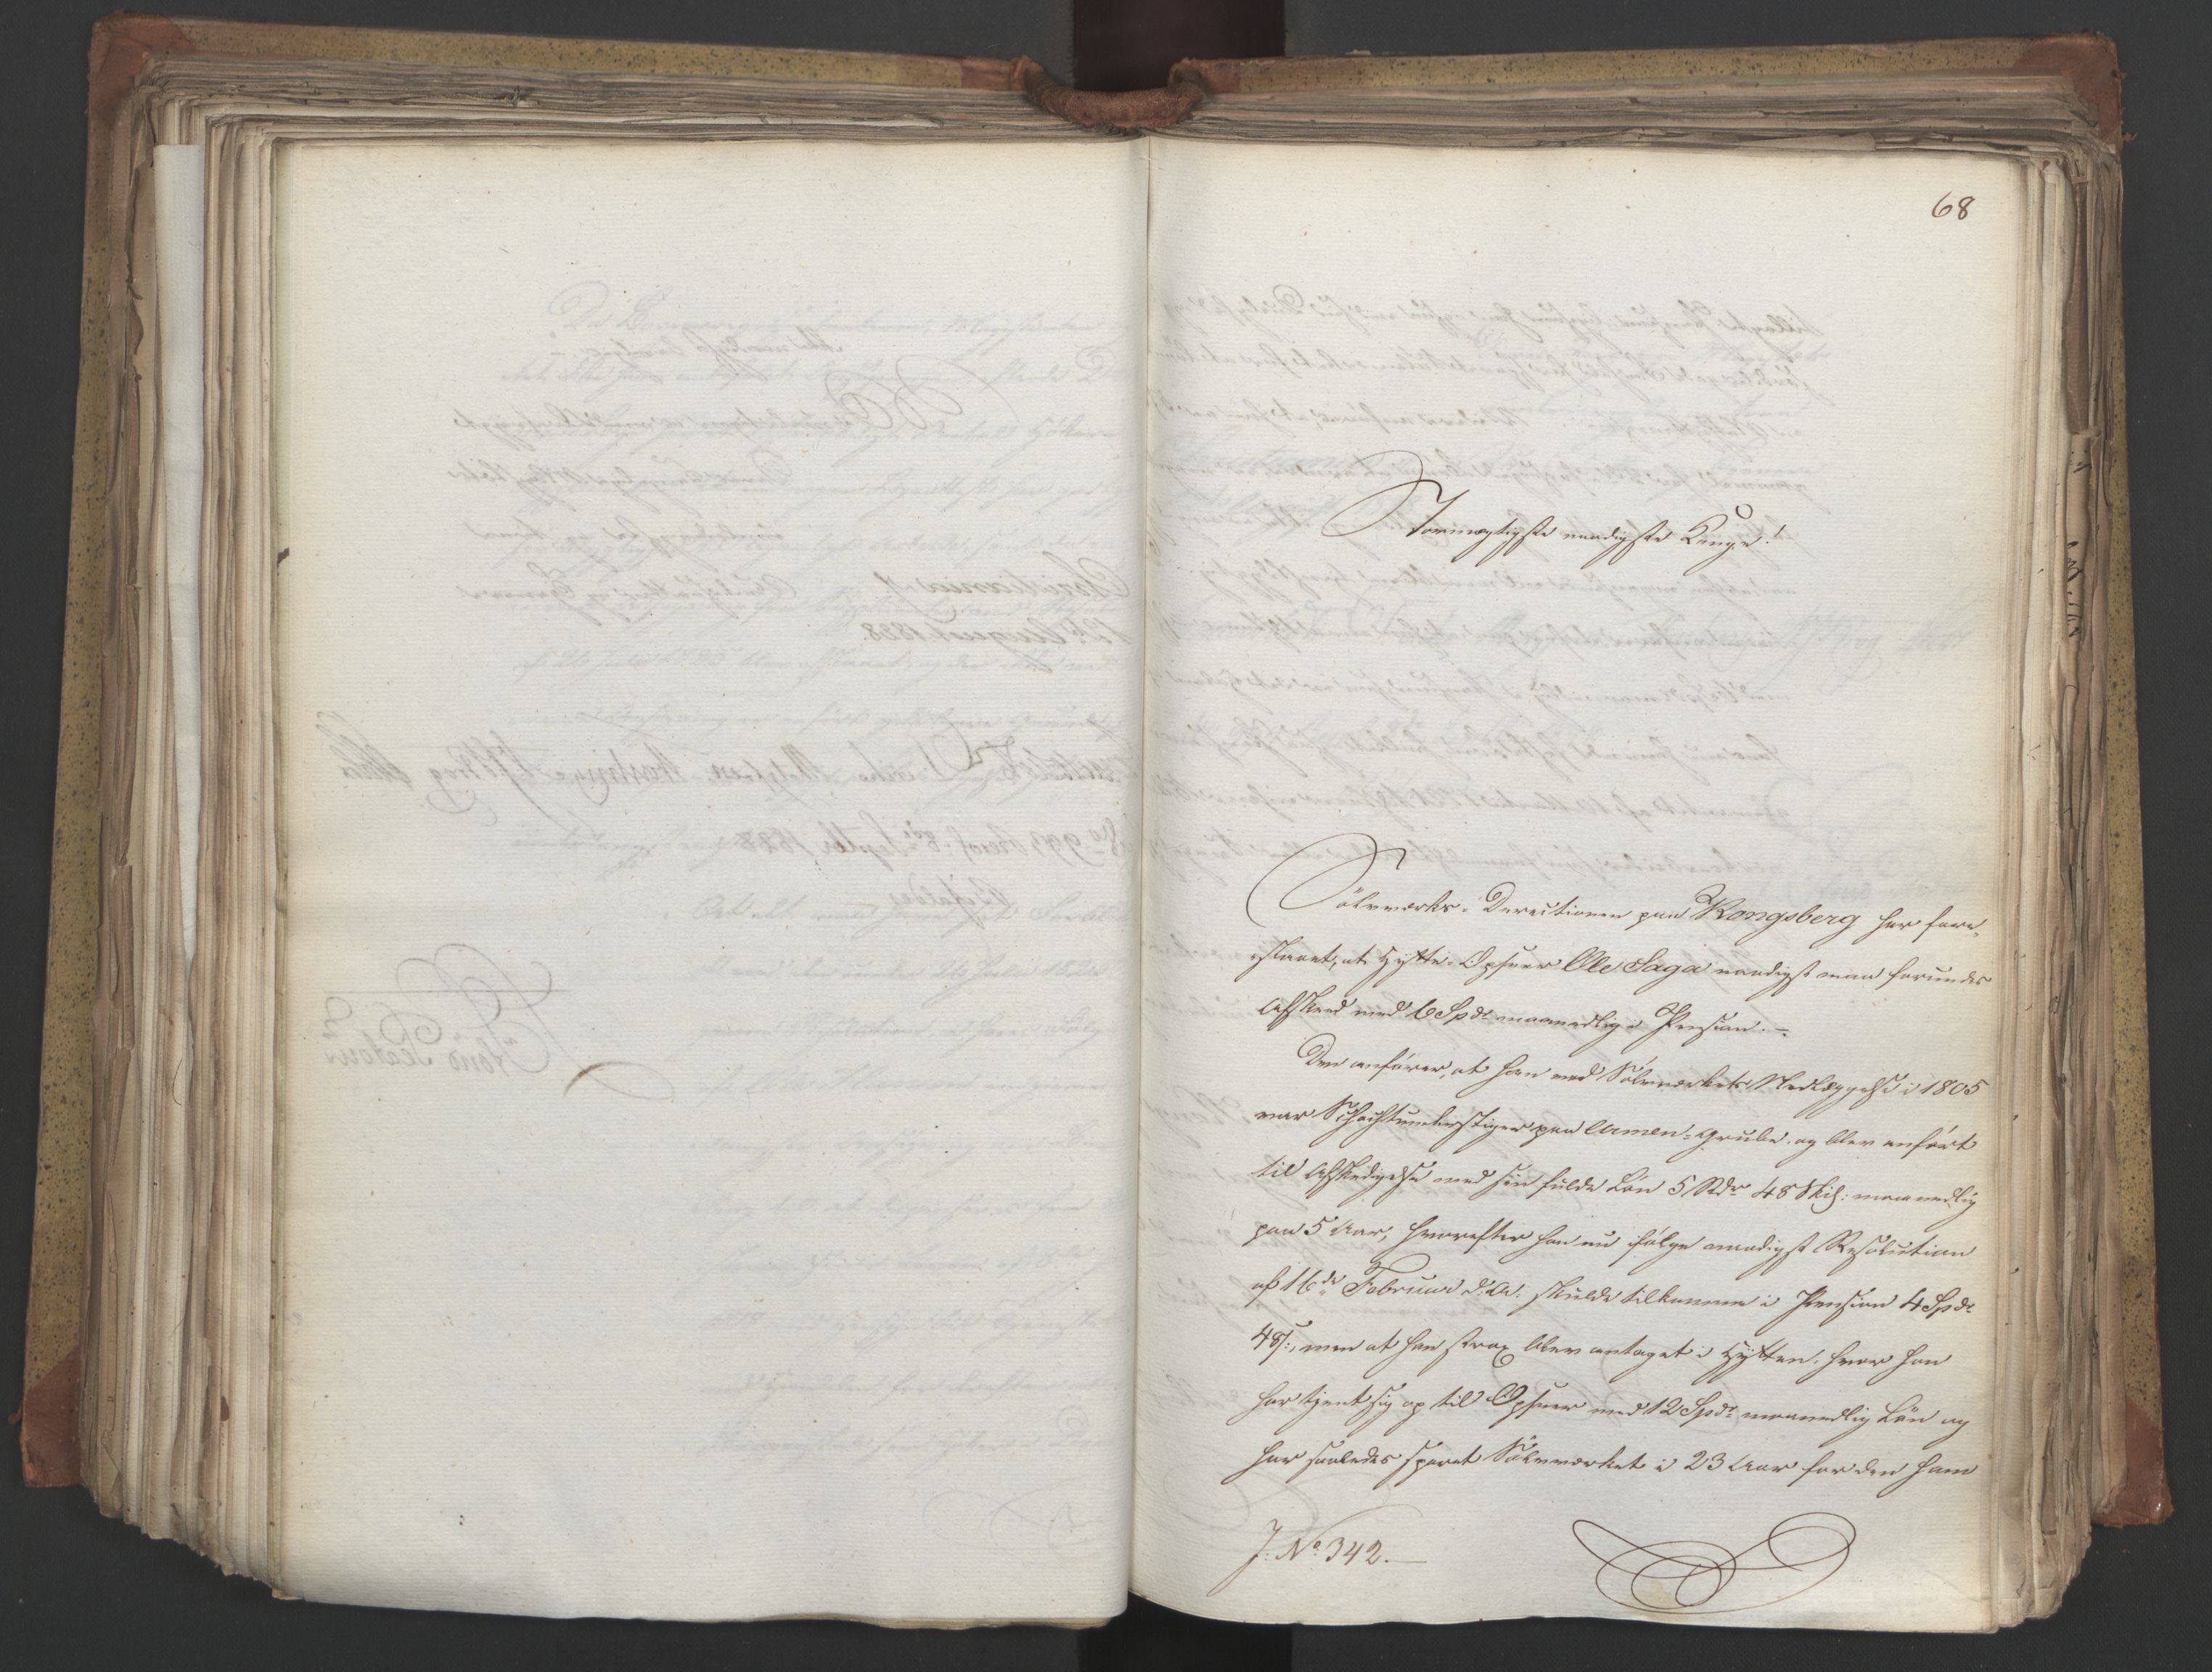 68
Stormægtigste naadigste Konge!
Sölvværks-Directionen paa Kongsberg har fore-
slaaet, at Hytte-Opseer Ole Saga naadigst maa forundes
Afskeed med 6 Spdr maanedlig i Pension.—
Den anförer, at han ved Sölvværkets Nedlæggelse i 1805
var Schachtunderstiger paa Armen-Grube, og blev anfört
til Afskedigelse med sin fulde Lön 5 Rdr 48 Skil: maanedlig
paa 5 Aar, hvorefter han nu ifölge naadigst Resolution
af 16de Februar d: A: skulde tilkomme i Pension 4 Spdr
48 s:, men at han strax blev antaget i Hytten, hvor han
har tjent sig op til Opseer med 12 Spdr maanedlig Lön og
har saaledes sparet Sölvværket i 23 Aar for den ham
J: No 342.—